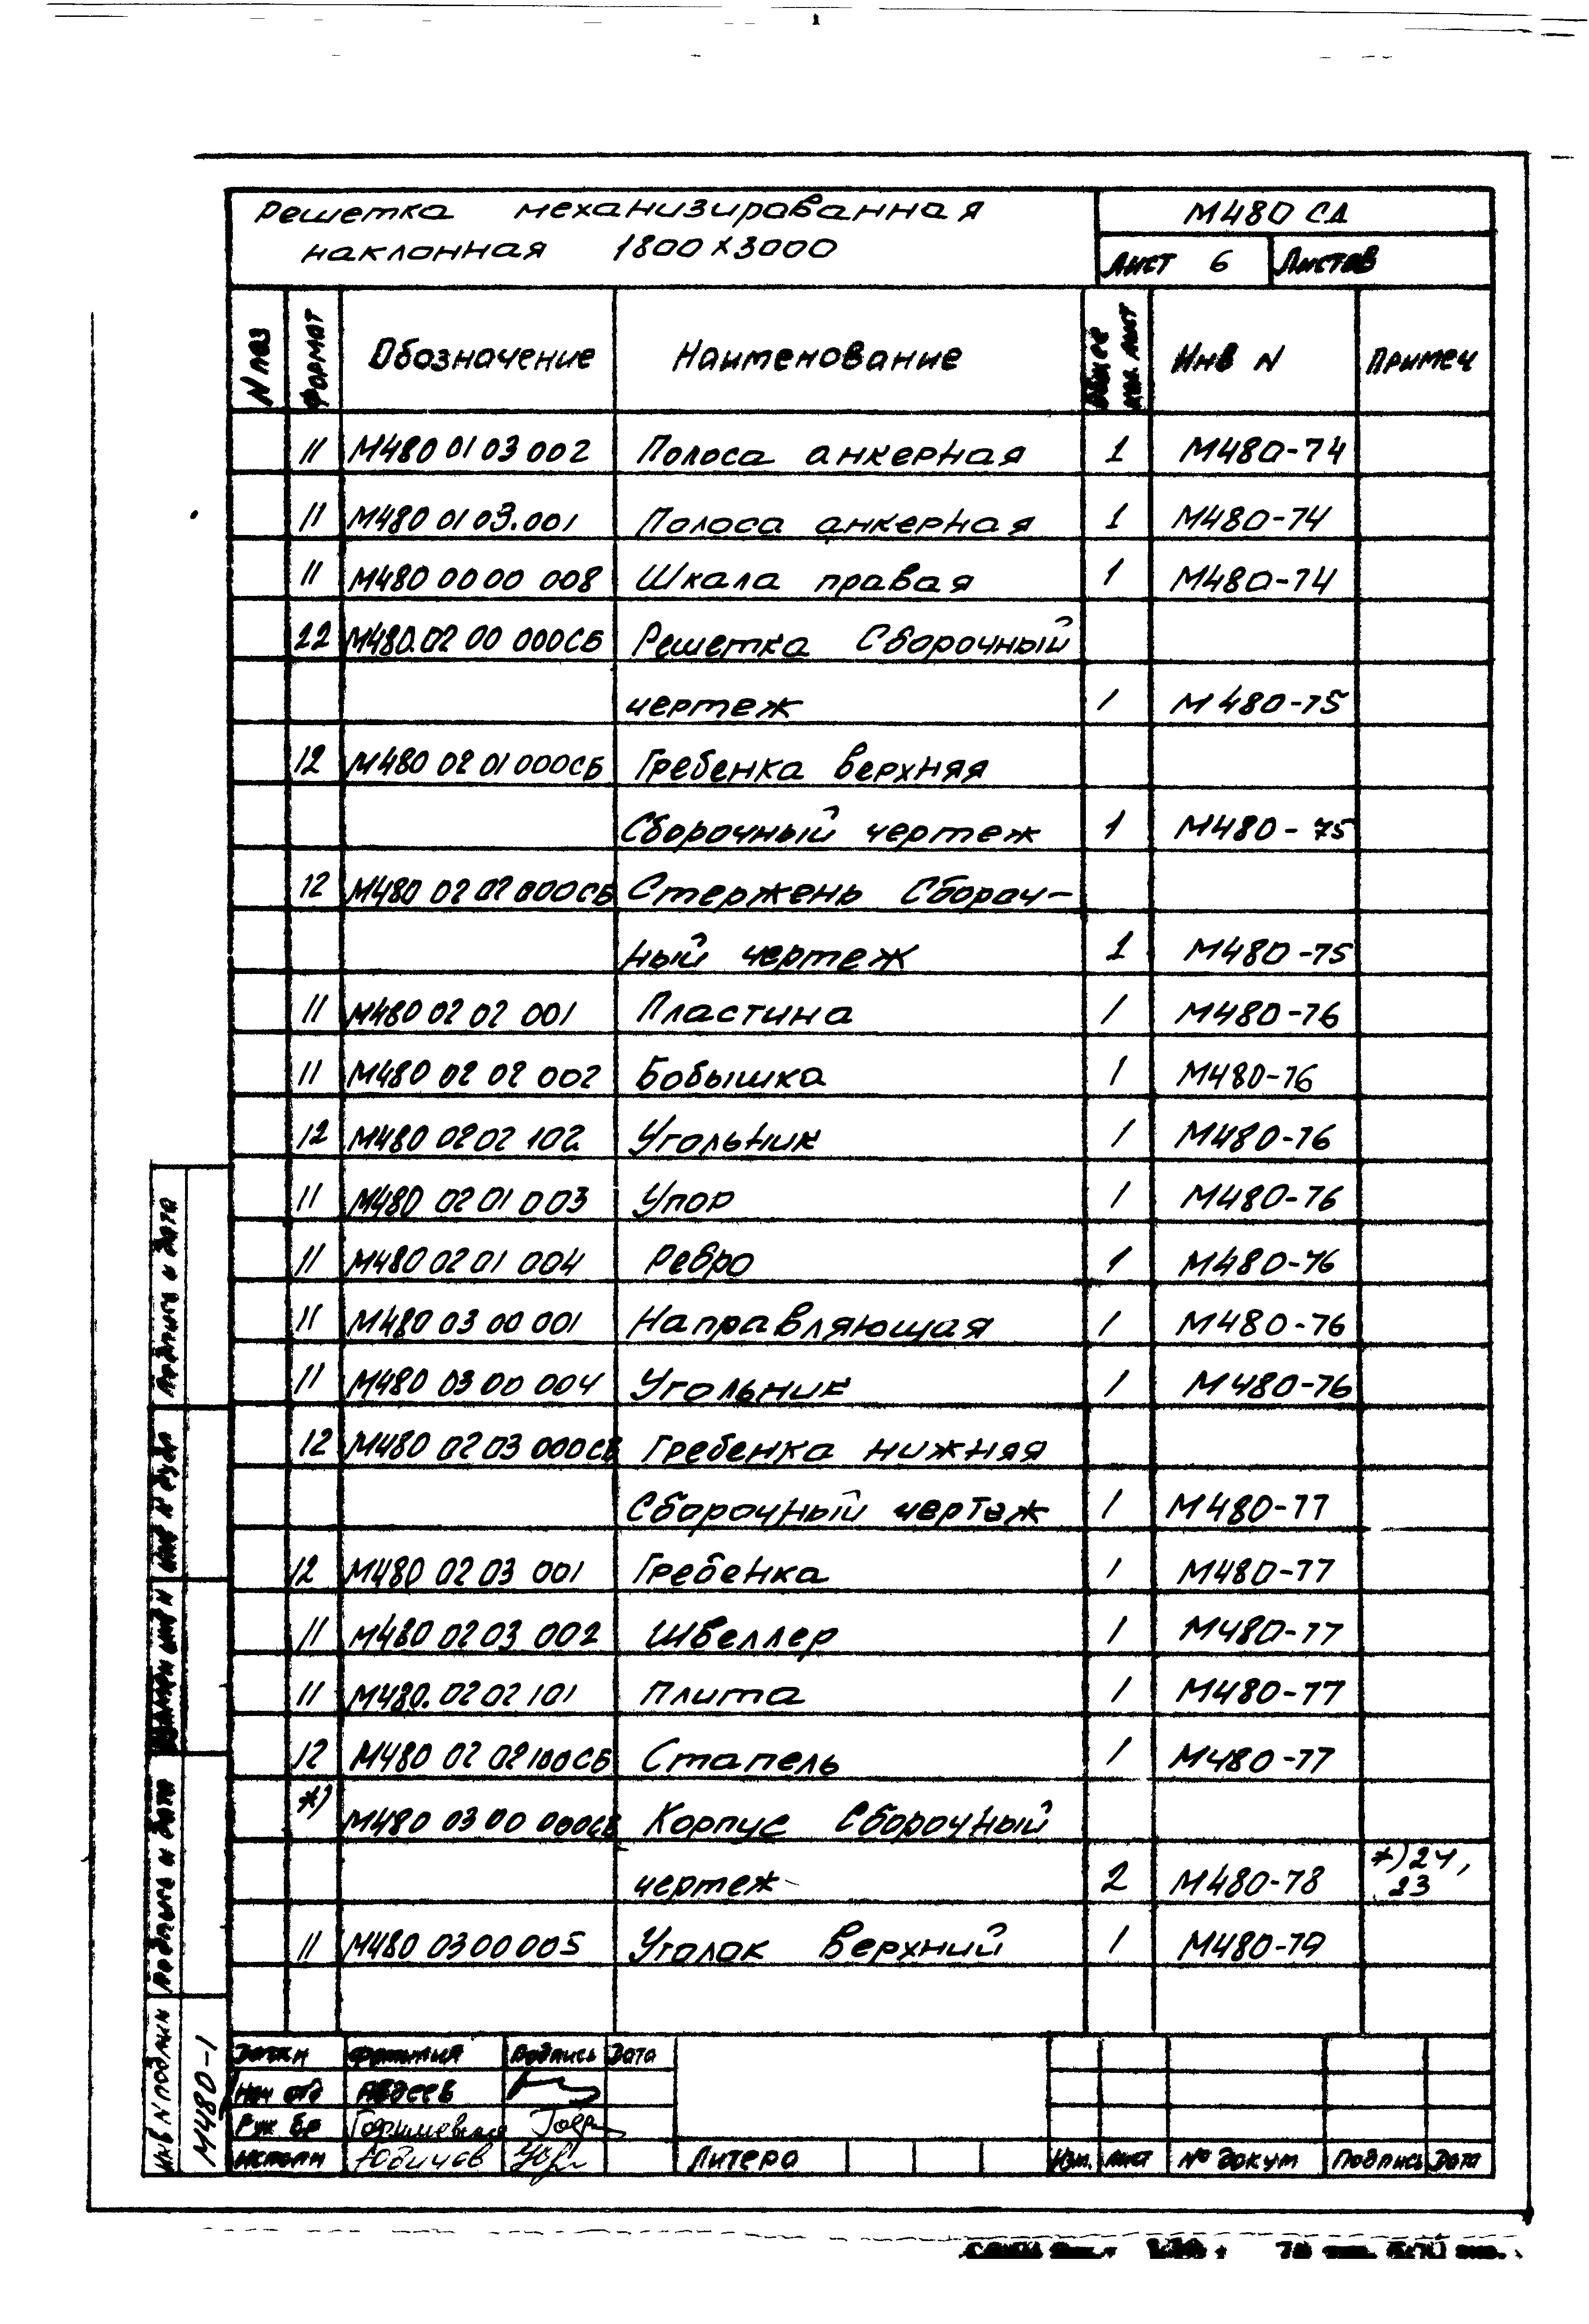 Решетка механизированная
наклонная 1800х3000
М480 СД
Лист 6 Листов
N поз Формат Обозначение Наименование Общее кол. лист Инв N Примеч
11 М480 01 03 002 Полоса анкерная 1 М480-74
11 М480 01 03.001 Полоса анкерная 1 М480-74
11 М480 00 00 008 Шкала правая 1 М480-74
22 М480.02 00 000СБ Решетка Сборочный
чертеж 1 М480-75
12 М480 02 01 000СБ Гребенка верхняя
Сборочный чертеж 1 М480-75
12 М480 02 02 000СБ Стержень Сбороч-
ный чертеж 1 М480-75
11 М480 02 02 001 Пластина 1 М480-76
11 М480 02 02 002 Бобышка 1 М480-76
12 М480 02 02 102 Угольник 1 М480-76
11 М480 02 01 003 Упор 1 М480-76
11 М480 02 01 004 Ребро 1 М480-76
11 М480 03 00 001 Направляющая 1 М480-76
11 М480 03 00 004 Угольник 1 М480-76
12 М480 02 03 000СБ Гребенка нижняя
Сборочный чертеж 1 М480-77
12 М480 02 03 001 Гребенка 1 М480-77
11 М480 02 03 002 Швеллер 1 М480-77
11 М480.02 02 101 Плита 1 М480-77
12 М480 02 02 100СБ Стапель 1 М480-77
*) М480 03 00 000СБ Корпус Сборочный
чертеж 2 М480-78 *) 24, 23
11 М480 03 00 005 Уголок верхний 1 М480-79
Фамилия Подпись Дата
Нач отд Авдеев
Рук бр
Исполн Юдичев
Литера
Изм. Лист № докум Подпись Дата
Подпись и дата
Инв N дубл
Взамен инв N
Подпись и дата
Инв N подлин
М480-1